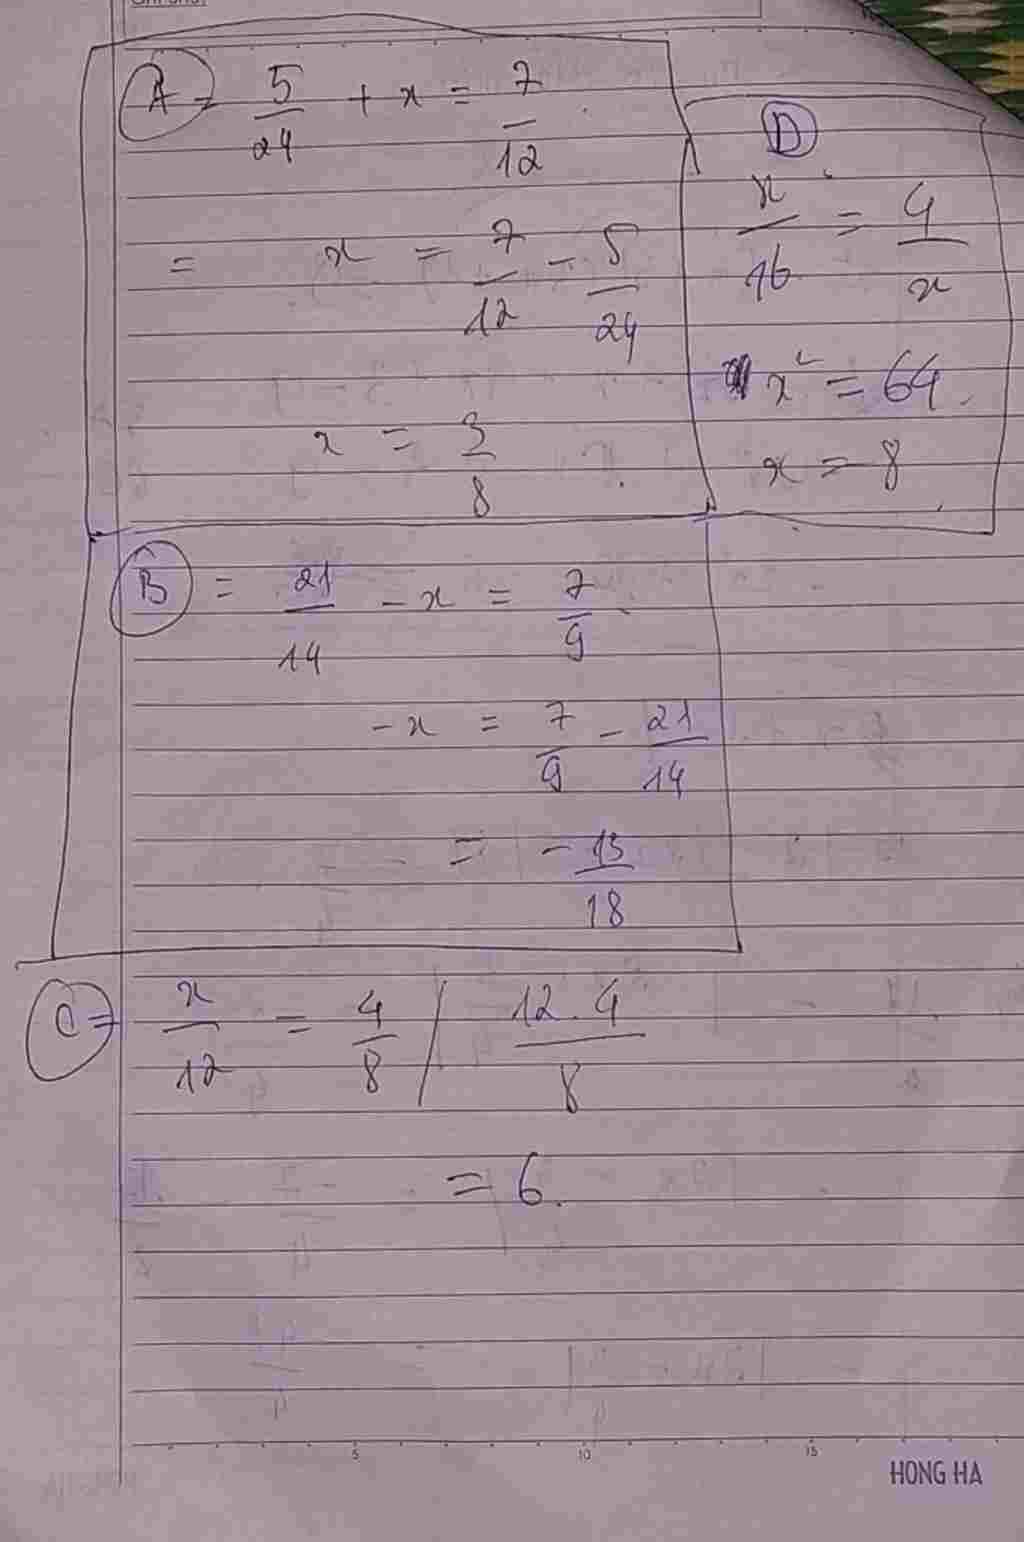 A = 5/24 + x = 7/12
= x = 7/12 - 5/24
x = 3/8
D
x/16 = 4/x
x² = 64
x = 8
B = 21/14 - x = 7/9
-x = 7/9 - 21/14
= -13/18
C = x/12 = 4/8 / 12.4/8
= 6.
5 10 15
HONG HA